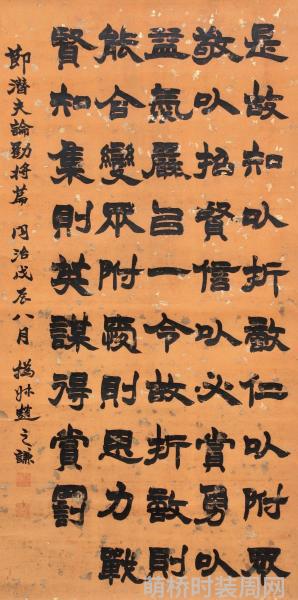 是故知㠯折敵仁㠯附眾
敬㠯招賢信㠯必賞勇㠯
益氣嚴㠯一令故折敵則
能合變眾附愛則思力戰
賢知集則英謀得賞罰
節潛夫論勸將篇 同治戊辰八月 撝叔趙之謙
萌桥时装周网